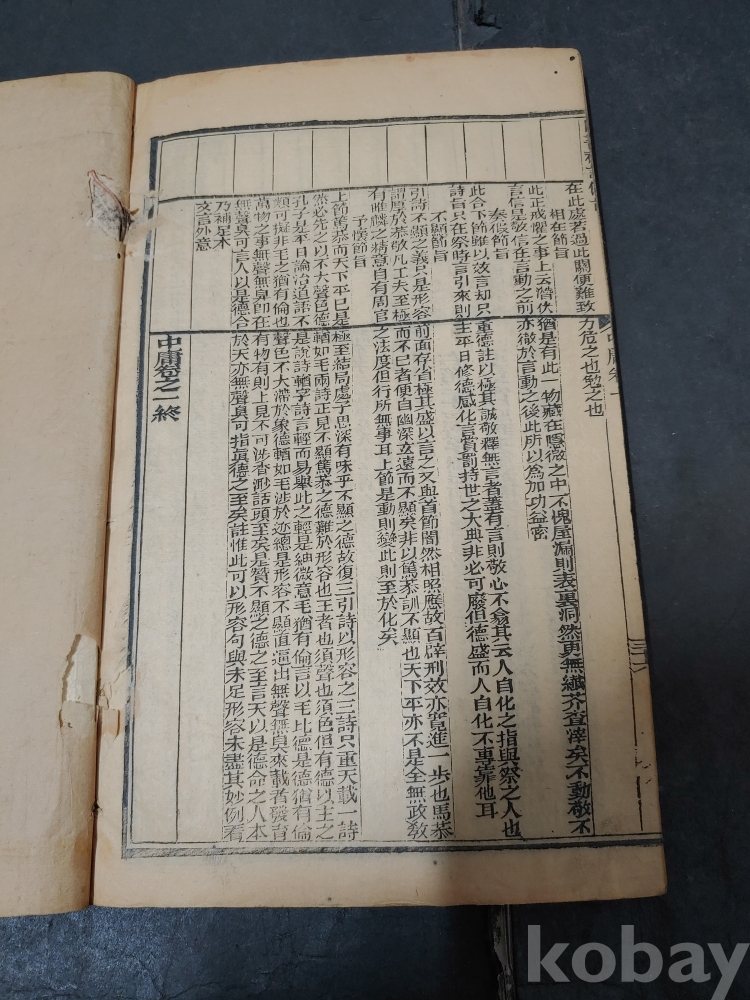 在此處若過此關便難致力危之也勉之也
相在節旨
此正戒懼之事上云潛伏猶是有此一物藏在隱微之中不愧屋漏則表裏洞然更無纖芥查滓矣不動敬不
言信是敬信在言動之前亦徹於言動之後此所以為加功益密
奏假節旨
此合下節雖以效言却只重德註以極其誠敬釋無言者蓋有言則敬心不易其云人自化之指與祭之人也
詩旨只在祭時言引來則主平日修德感化言賞罰持世之大典非必可廢但德盛而人自化不專靠他耳
不顯節旨
引詩不顯之義只是形容前面存省極其盛以言之又與首節闇然相照應故百辟刑效亦實進一步也篤恭
謂厚於恭敬凡工夫至極而不已者便自幽深玄遠而不顯矣非以篤恭訓不顯也天下平亦不是全無政教
有睢麟之精意自有周官之法度但行所無事耳上節是動則變此則至於化矣
予懷節旨
上節篤恭而天下平已是極至結局處子思深有味乎不顯之德故復三引詩以形容之三詩只重天載一詩
然必先之以不大聲色德輶如毛兩詩正見不顯篤恭之德難於形容也王者也須聲也須色但有德以主之
孔子是平日論治道語不是說詩輶字詩言輕而易舉此之輕是細微意毛猶有倫言以毛比德是德猶有倫
類可擬非毛之猶有倫也聲色不大滯於象德輶如毛涉於迹總是形容不顯直逼出無聲無臭來載者發育
萬物之事無聲無臭即在有物有則上見不可涉杳渺話頭至矣是贊不顯之德之至言天以是德命之人本
無聲臭可言人以是德合於天亦無聲臭可指真德之至矣註惟此可以形容句與未足形容未盡其妙例看
乃補足本
文言外意
中庸卷之一終
中庸卷一
kobay